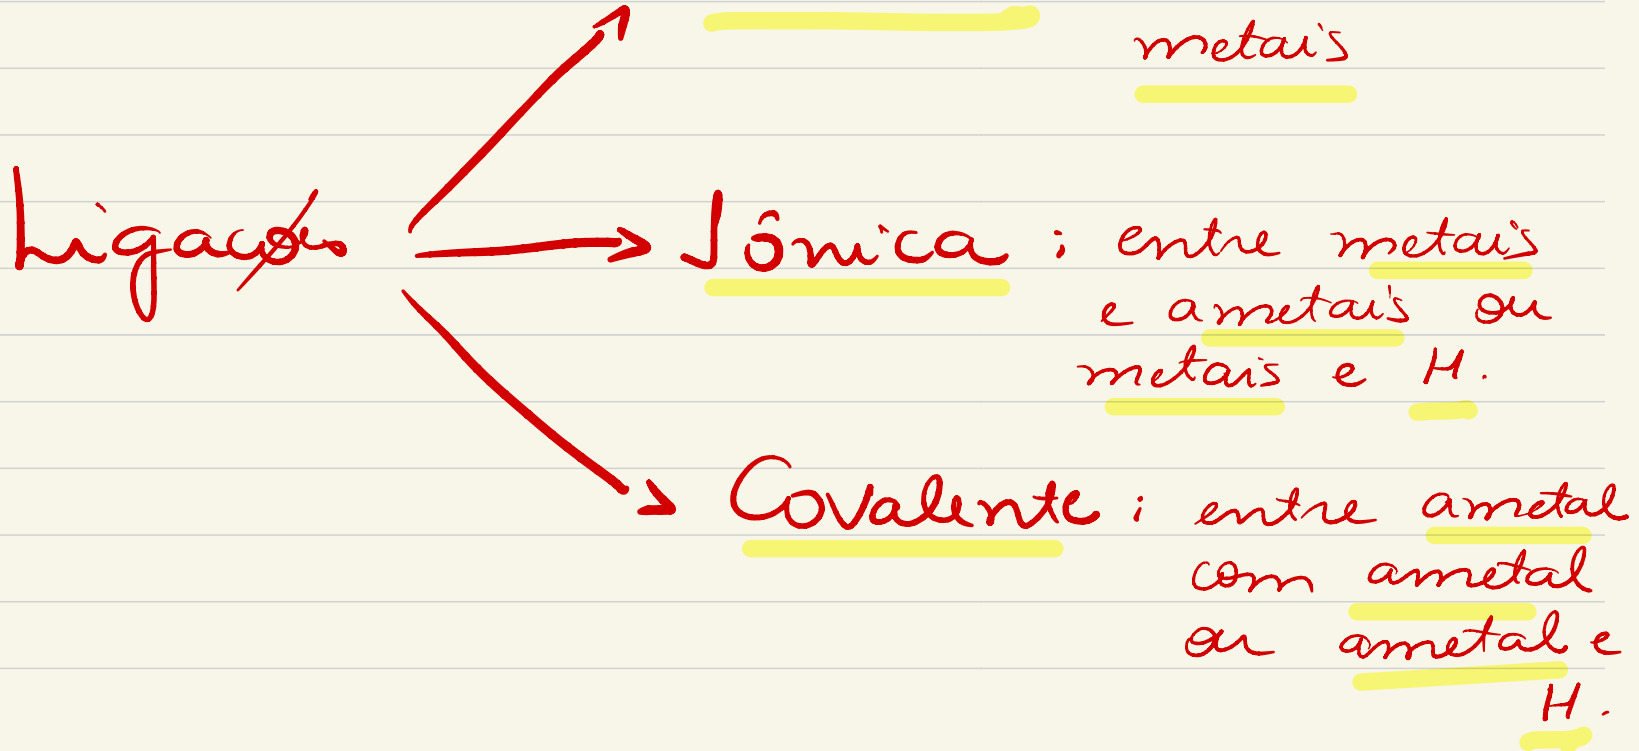 metais
Ligações
Iônica : entre metais
e ametais ou
metais e H.
Covalente : entre ametal
com ametal
ou ametal e
H.